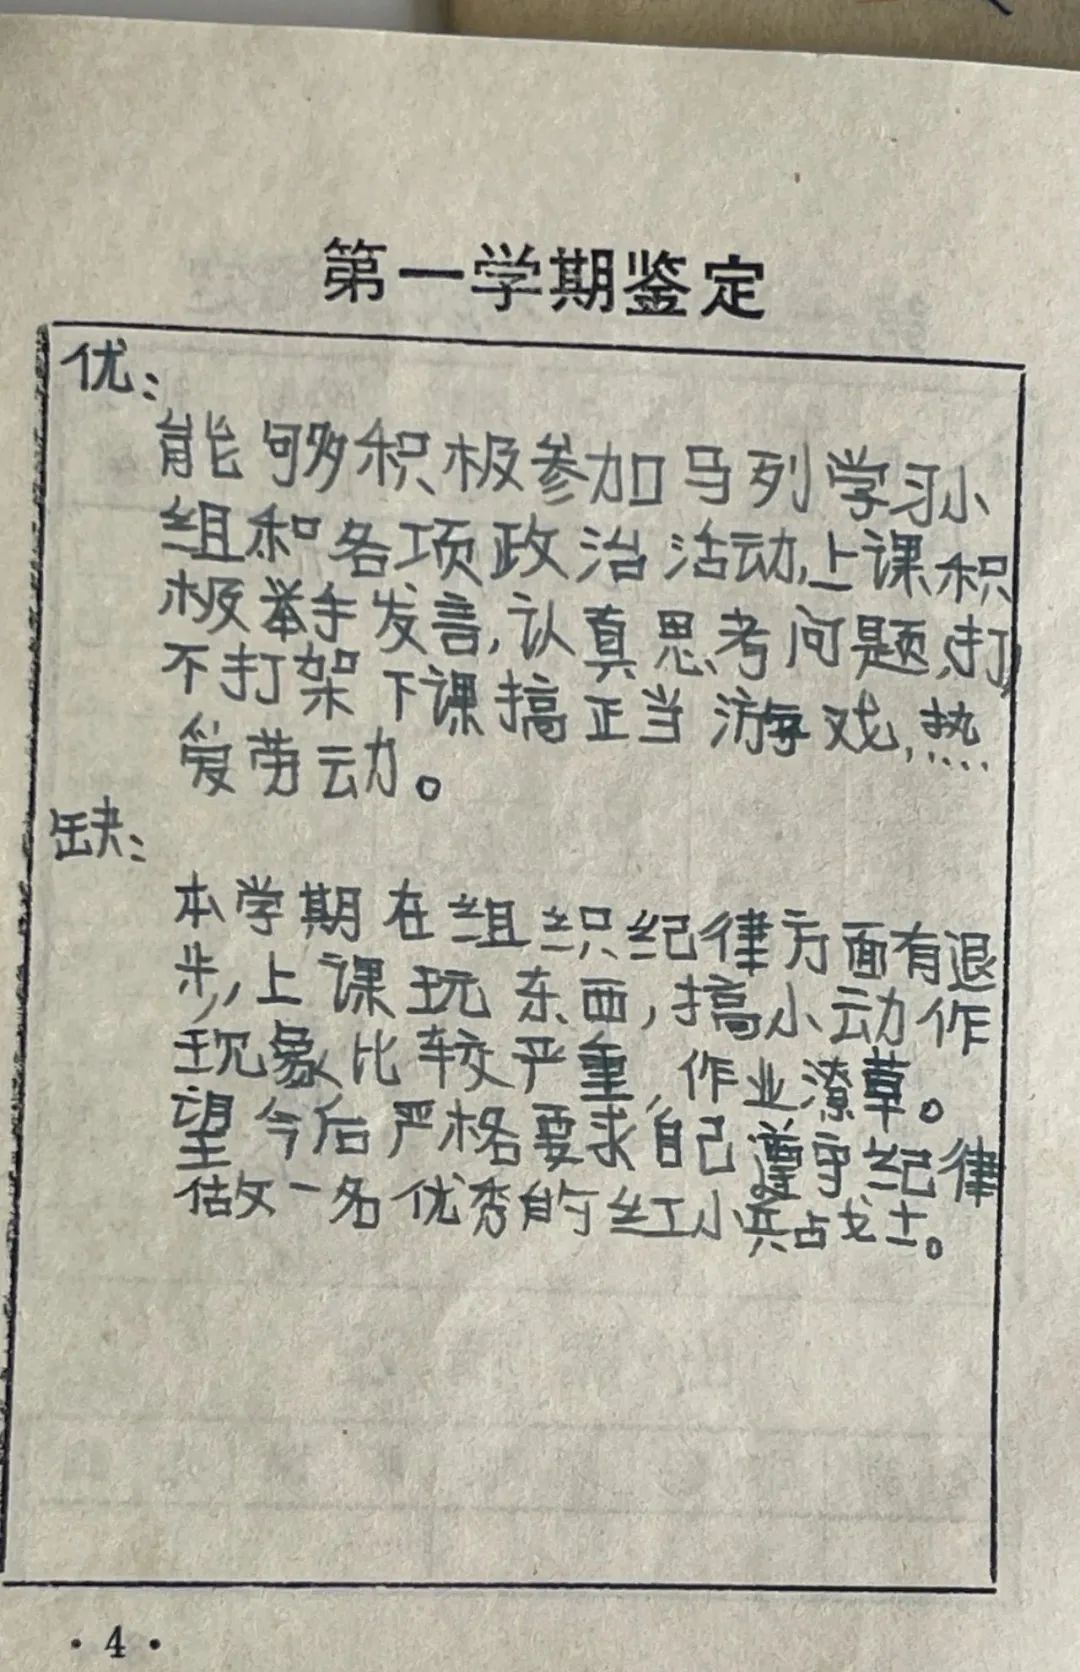 第一学期鉴定
优:
能够积极参加马列学习小
组和各项政治活动,上课积
极举手发言,认真思考问题,打
不打架下课搞正当游戏,热
爱劳动。
缺:
本学期在组织纪律方面有退
步,上课玩东西,搞小动作
现象比较严重,作业潦草。
望今后严格要求自己遵守纪律
做一名优秀的红小兵战士。
·4·